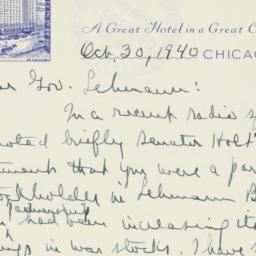 A Great Hotel in a Great C
Oct. 30, 1940 CHICAG
ar Gov. Lehmann:
In a recent radio s
uoted briefly Senator Holt'
ments that you were a par
ockholder in Lehmann B
Partnership
had been increasing th
ngs in war stocks. I have s